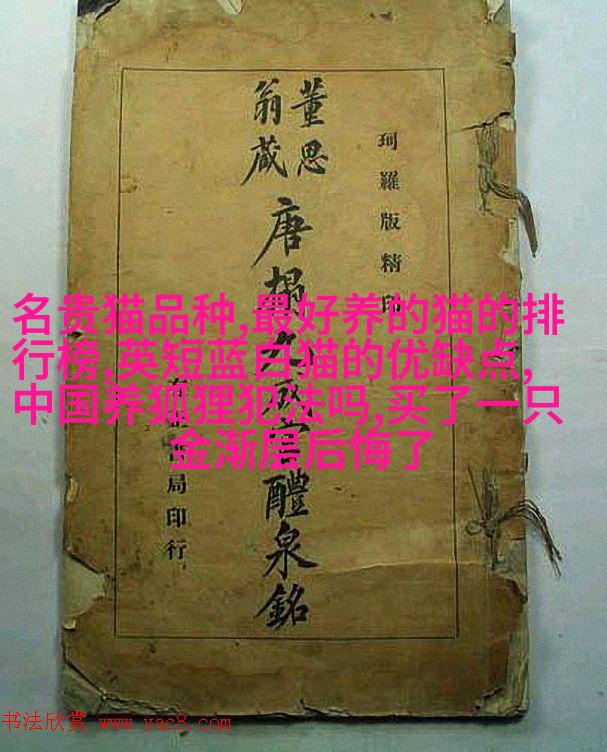 珂羅版精印
董思
翁藏
唐搨九成宮醴泉銘
有局印行
名贵猫品种,最好养的猫的排
行榜,英短蓝白猫的优缺点,
中国养狐狸犯法吗,买了一只
金渐层后悔了
书法欣赏 www.yac8.com